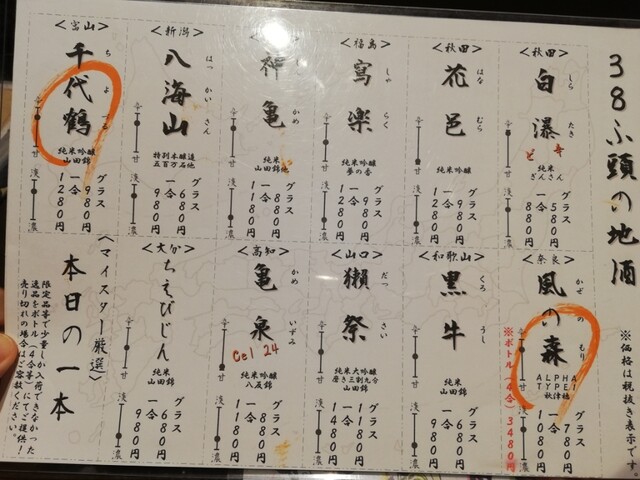 38ふ頭の地酒
※価格は税抜き表示です。
<秋田>
白瀑
しら
たき
純米
ど
辛
どんさん
辛
甘
淡
濃
グラス 580円
一合 880円
<秋田>
花邑
はな
むら
純米吟醸
辛
甘
淡
濃
グラス 980円
一合 1280円
<福島>
寫楽
しゃ
らく
純米吟醸
夢の香
辛
甘
淡
濃
グラス 980円
一合 1280円
神亀
かめ
純米
山田錦他
辛
甘
淡
濃
グラス 880円
一合 1180円
<新潟>
八海山
はっ
かい
さん
特別本醸造
五百万石他
辛
甘
淡
濃
グラス 680円
一合 980円
<富山>
千代鶴
ち
よ
づる
純米吟醸
山田錦
辛
甘
淡
濃
グラス 980円
一合 1280円
<奈良>
風の森
かぜ
の
もり
ALPHA
TYPE
秋津穂
辛
甘
淡
濃
グラス 780円
一合 1080円
※ボトル(4合)3480円
<和歌山>
黒牛
くろ
うし
純米
山田錦
辛
甘
淡
濃
グラス 680円
一合 980円
<山口>
獺祭
だっ
さい
純米大吟醸
磨き三割九分
山田錦
辛
甘
淡
濃
グラス 1180円
一合 1480円
<高知>
亀泉
かめ
いずみ
Cel 24
純米吟醸
八反錦
辛
甘
淡
濃
グラス 880円
一合 1180円
<大分>
ちえびじん
純米
山田錦
辛
甘
淡
濃
グラス 680円
一合 980円
<マイスター厳選>
本日の一本
限定品等で少量しか入荷できなかった
逸品をボトル(4合等)にてご提供!
売り切れの場合はご容赦ください。